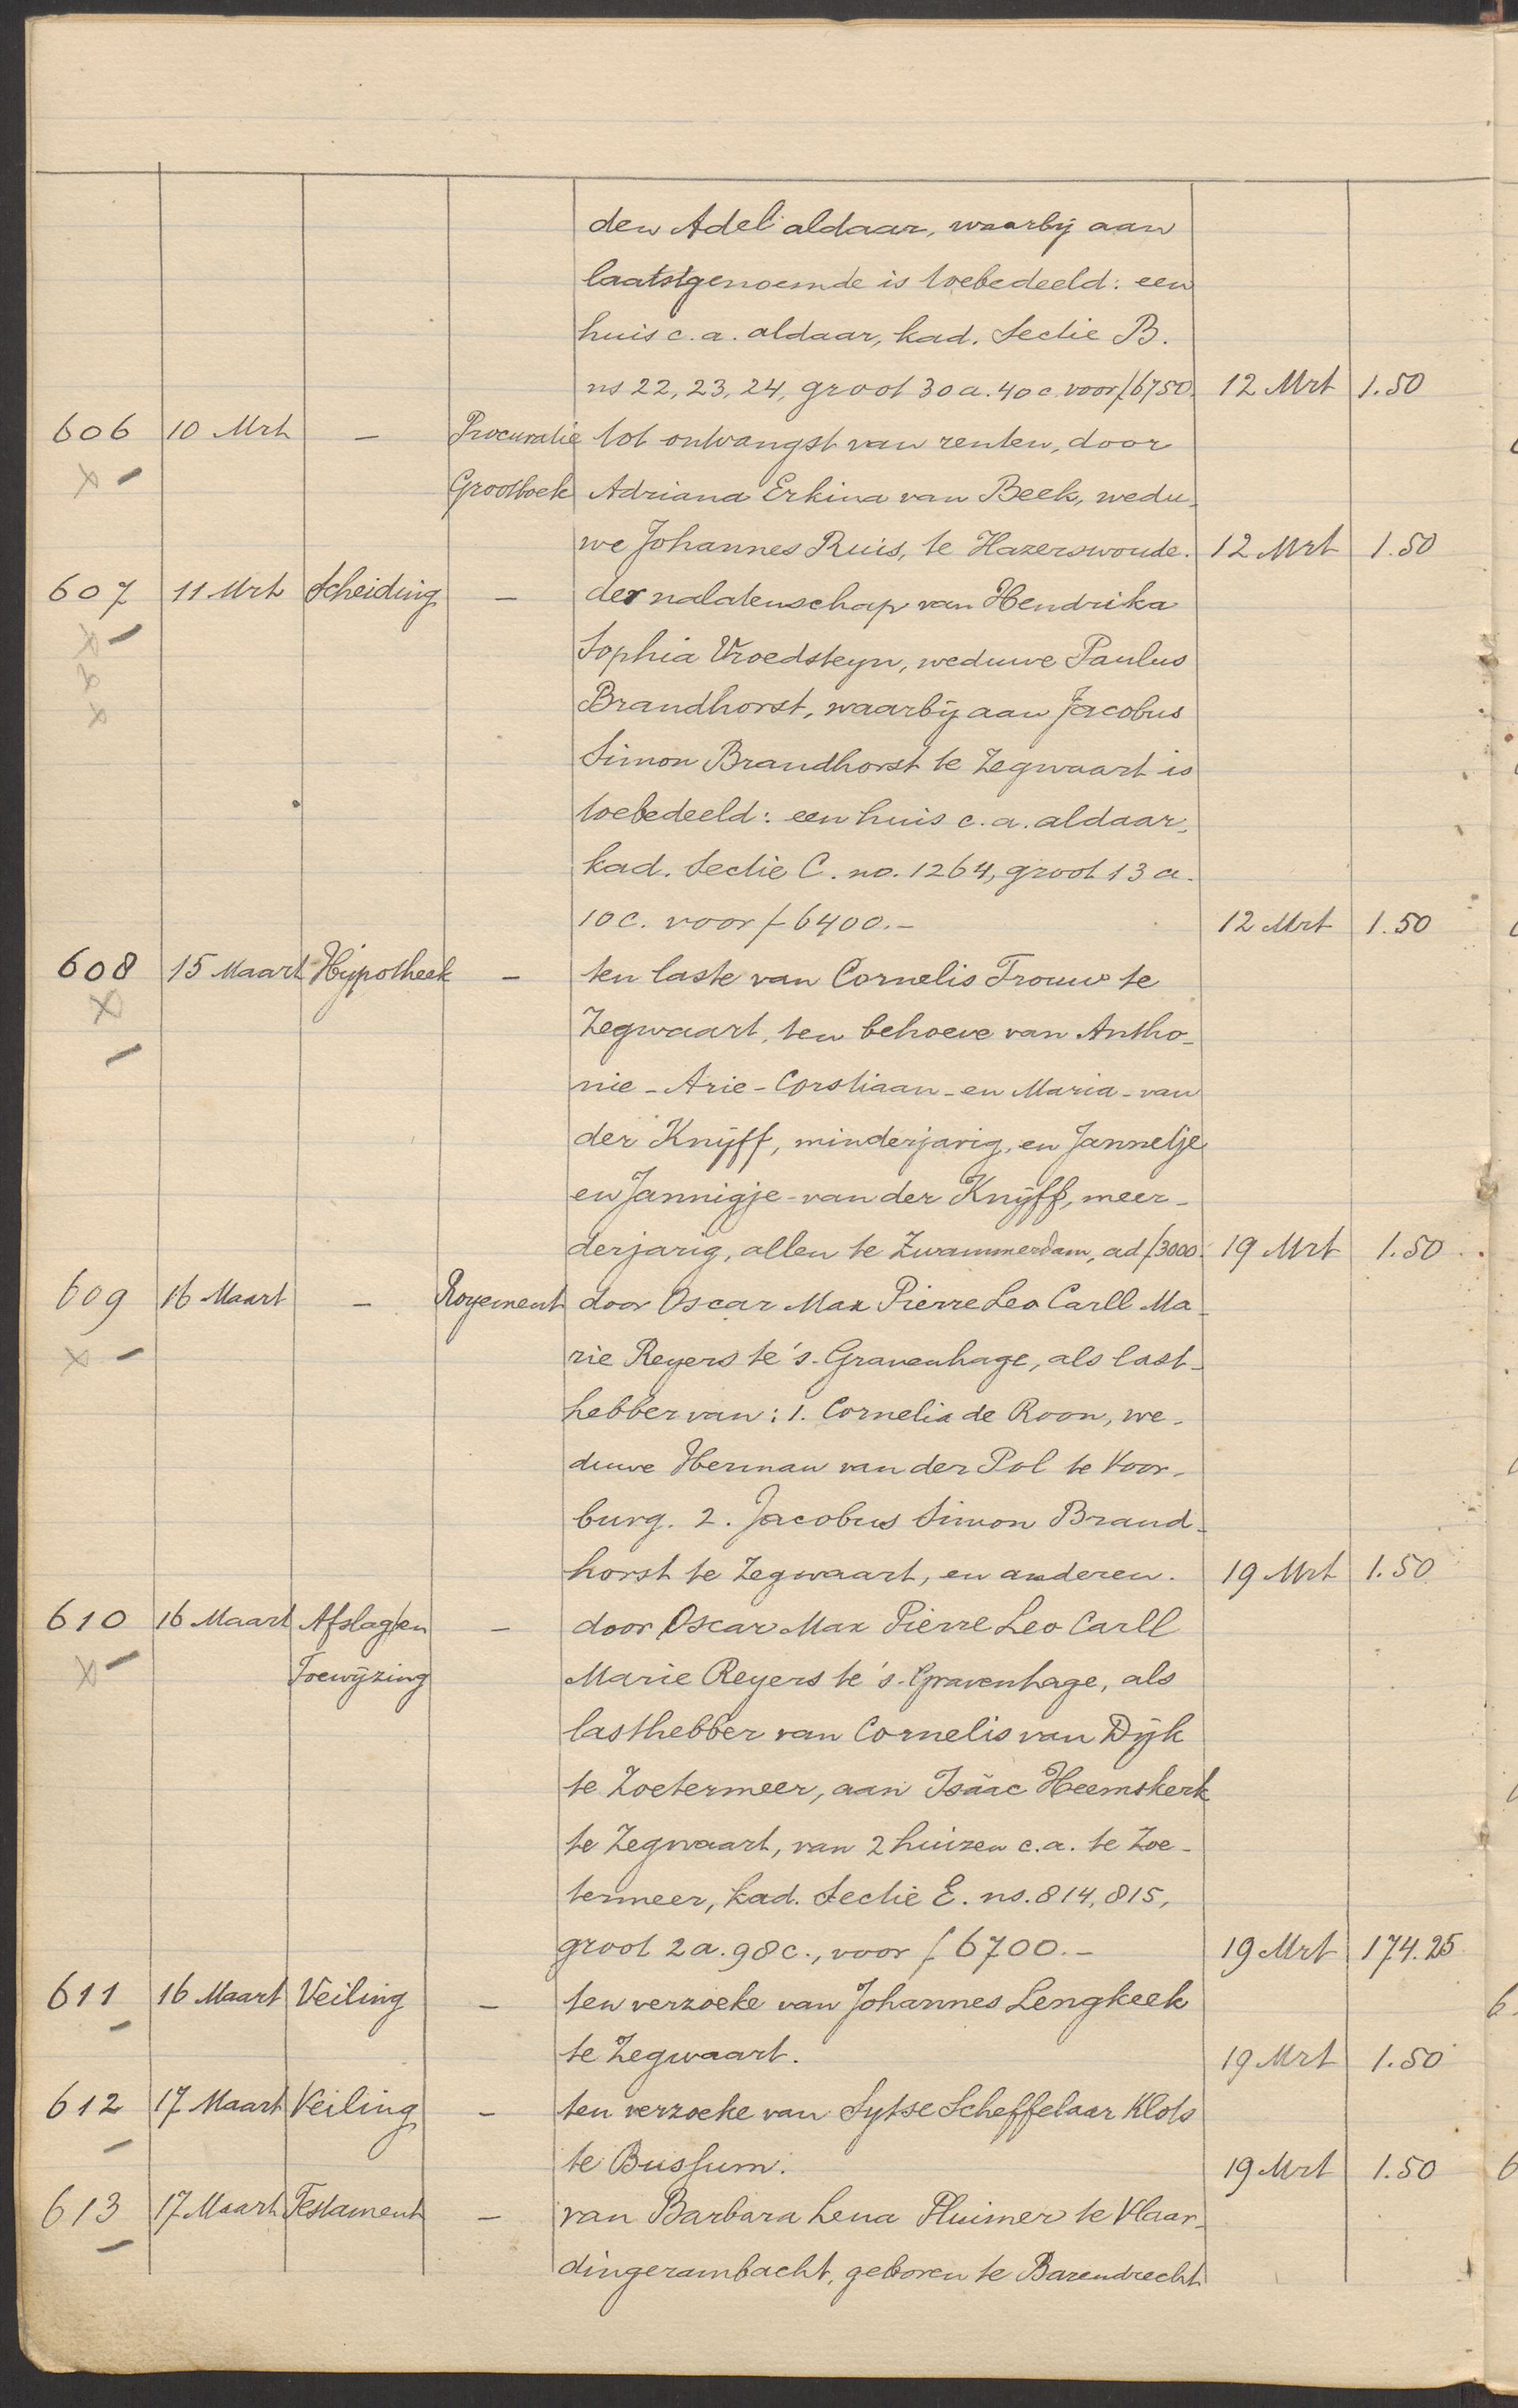 den Adel aldaar, waarbij aan
laatstgenoemde is toebedeeld: een
huis c.a. aldaar, kad. Sectie B.
ns 22, 23, 24, groot 30 a. 40 c. voor f 6750. 12 Mrt 1.50
606 10 Mrt - Procuratie tot ontvangst van renten, door
Grootboek Adriana Erkina van Beek, wedu-
we Johannes Ruis, te Hazerswoude. 12 Mrt 1.50
607 11 Mrt Scheiding - der nalatenschap van Hendrika
Sophia Vroedsteyn, weduwe Paulus
Brandhorst, waarbij aan Jacobus
Simon Brandhorst te Zegwaart is
toebedeeld: een huis c.a. aldaar,
kad. Sectie C. no. 1264, groot 13 a.
10 c. voor f 6400.- 12 Mrt 1.50
608 15 Maart Hypotheek - ten laste van Cornelis Trouw te
Zegwaart, ten behoeve van Antho-
nie - Arie - Corstiaan - en Maria - van
der Knijff, minderjarig, en Jannetje
en Jannigje - van der Knijff, meer-
derjarig, allen te Zwammerdam, ad f 3000. 19 Mrt 1.50
609 16 Maart - Royement door Oscar Max Pierre Leo Carll Ma-
rie Reyers te 's-Gravenhage, als last-
hebber van: 1. Cornelia de Roon, we-
duwe Herman van der Pol te Voor-
burg. 2. Jacobus Simon Brand-
horst te Zegwaart, en anderen. 19 Mrt 1.50
610 16 Maart Afslag en - door Oscar Max Pierre Leo Carll
Toewijzing Marie Reyers te 's-Gravenhage, als
lasthebber van Cornelis van Dijk
te Zoetermeer, aan Isäac Heemskerk
te Zegwaart, van 2 huizen c.a. te Zoe-
termeer, kad. Sectie E. ns. 814, 815,
groot 2 a. 98 c., voor f 6700.- 19 Mrt 174.25
611 16 Maart Veiling - ten verzoeke van Johannes Lengkeek
te Zegwaart. 19 Mrt 1.50
612 17 Maart Veiling - ten verzoeke van Sytse Scheffelaar Klots
te Bussum. 19 Mrt 1.50
613 17 Maart Testament - van Barbara Lena Pluimer te Vlaar-
dingerambacht, geboren te Barendrecht